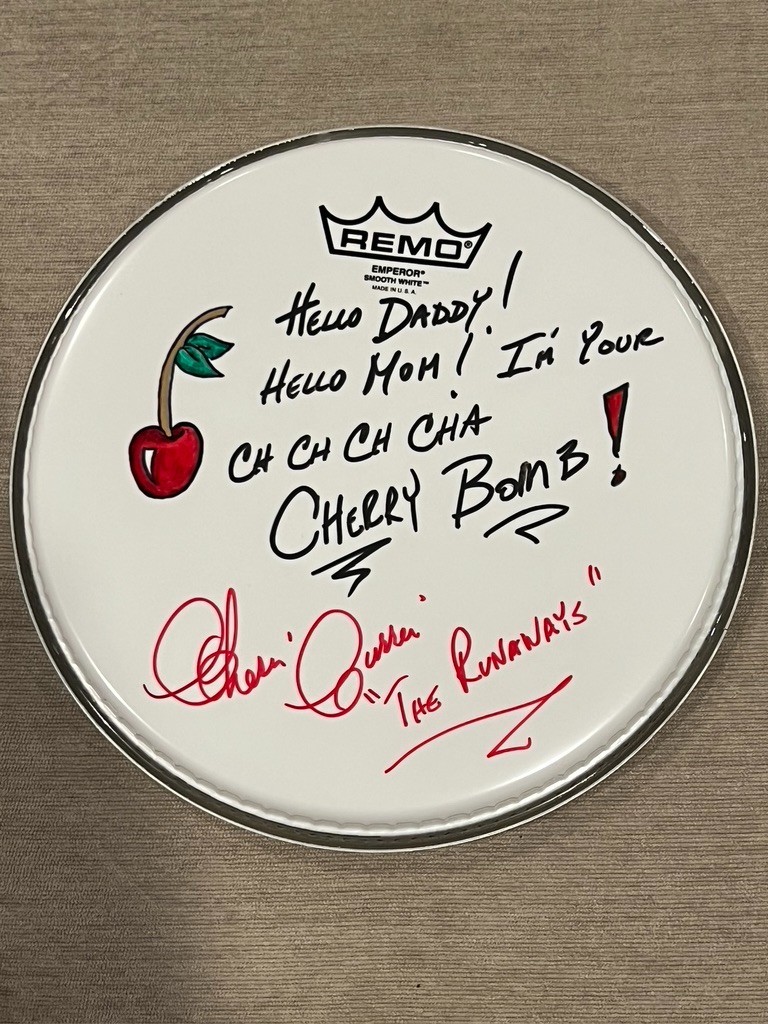 REMO®
EMPEROR®
SMOOTH WHITE™
MADE IN U.S.A.
HELLO DADDY!
HELLO MOM! I'M YOUR
CH CH CH CHA
CHERRY BOMB!
Cherie Currie
"THE RUNAWAYS"